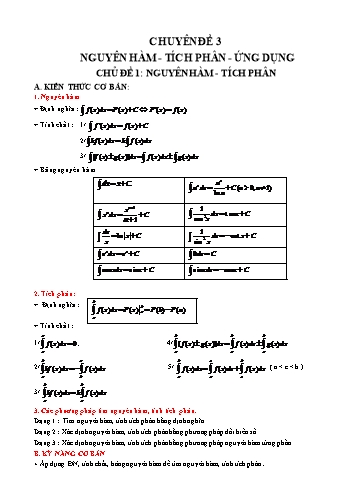 CHUYÊN ĐỀ 3
NGUYÊN HÀM - TÍCH PHÂN - ỨNG DỤNG
CHỦ ĐỀ 1: NGUYÊN HÀM - TÍCH PHÂN
A. KIẾN THỨC CƠ BẢN:
1. Nguyên hàm
+ Định nghĩa : ∫f(x)dx = F(x)+C ⇔ F'(x) = f(x)
+ Tính chất : 1/ ∫f'(x)dx = f(x)+C
2/ ∫kf(x)dx = k∫f(x)dx
3/ ∫[f(x)±g(x)]dx = ∫f(x)dx ± ∫g(x)dx
+ Bảng nguyên hàm
∫dx = x+C
∫aˣdx = aˣ/ln a + C (a>0, a≠1)
∫1/cos²x dx = tan x + C
∫dx/x = ln|x|+C
∫1/sin²x dx = -cot x + C
∫eˣdx = eˣ+C
∫0dx = C
∫cos x dx = sin x + C
∫sin x dx = -cos x + C
2. Tích phân:
+ Định nghĩa :
+ Tính chất :
3. Các phương pháp tìm nguyên hàm, tính tích phân.
Dạng 1 : Tìm nguyên hàm, tính tích phân bằng định nghĩa
Dạng 2 : Xác định nguyên hàm, tính tích phân bằng phương pháp đổi biến số
Dạng 3 : Xác định nguyên hàm, tính tích phân bằng phương pháp nguyên hàm từng phần
B. KỸ NĂNG CƠ BẢN
+ Áp dụng ĐN, tính chất, bảng nguyên hàm để tìm nguyên hàm, tính tích phân.